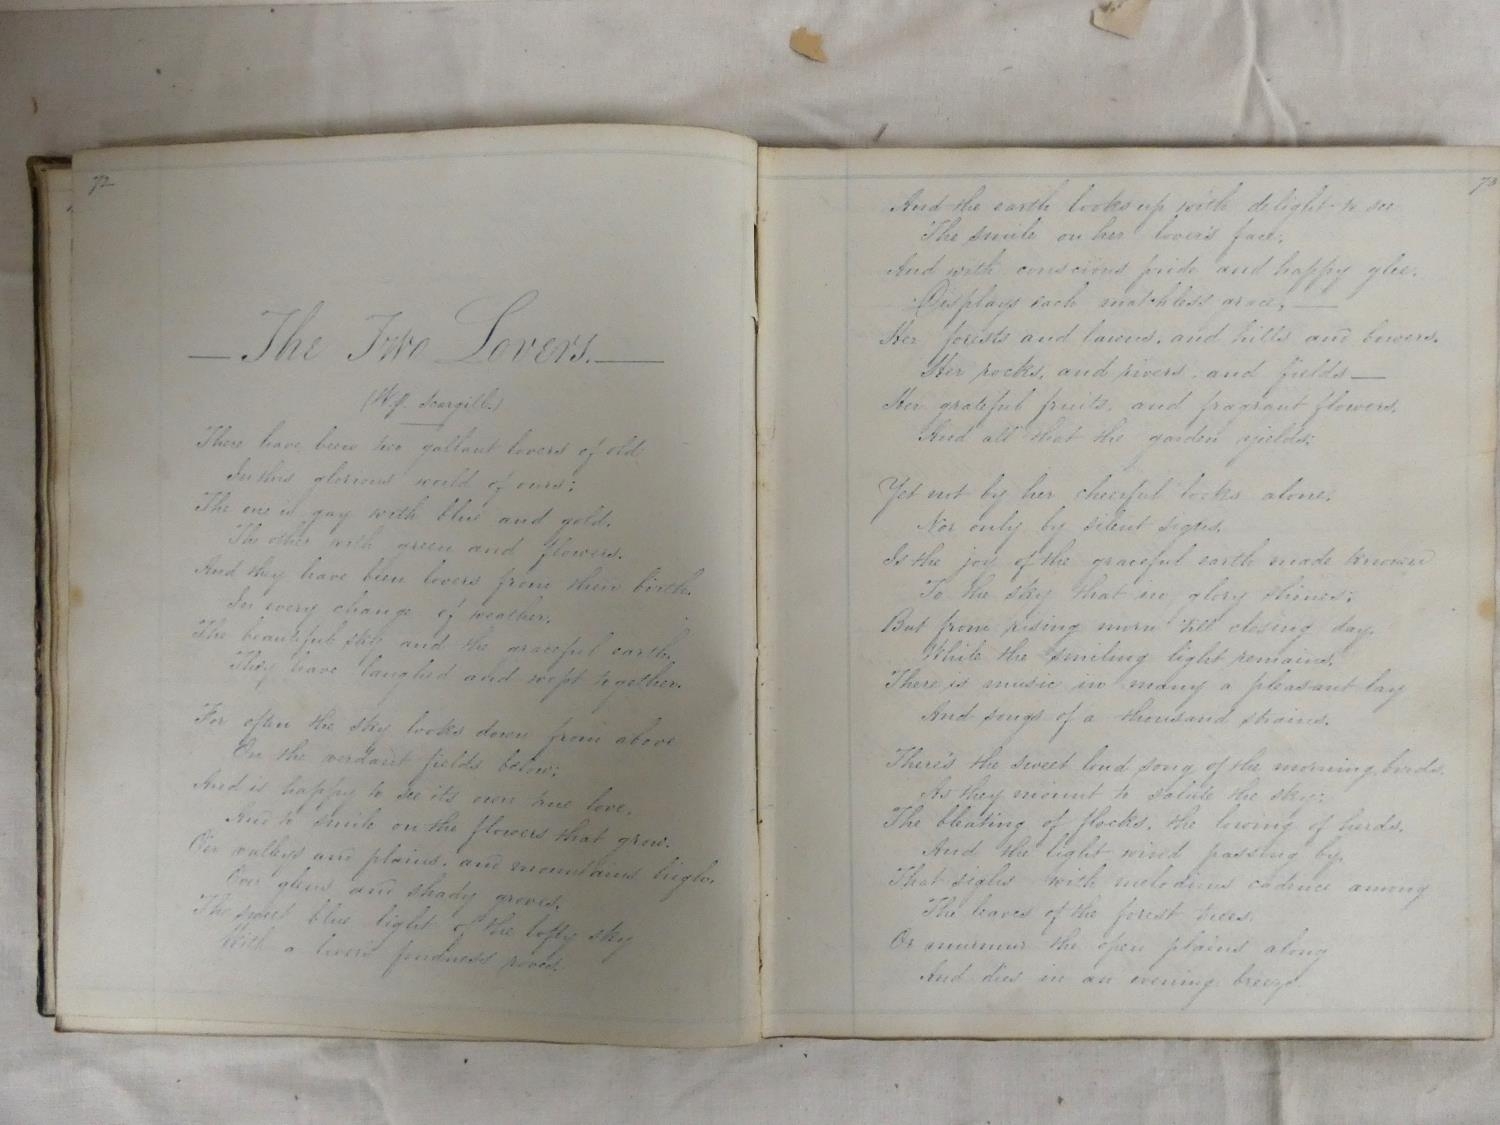 72
— The Two Lovers. —
(W.P. Scargill.)
There have been two gallant lovers of old
In this glorious world of ours;
The one is gay with blue and gold.
The other with green and flowers.
And they have been lovers from their birth.
In every change of weather.
The beautiful sky and the graceful earth.
They have laughed and wept together.
For often the sky looks down from above
On the verdant fields below;
And is happy to see its own true love.
And to smile on the flowers that grow.
O'er valleys and plains, and mountains high.
Over glens and shady groves.
The sweet blue light of the lofty sky
With a lover's fondness roves.
73
And the earth looks up with delight to see
The smile on her lover's face;
And with conscious pride and happy glee.
Displays each matchless grace. —
Her forests and lawns, and hills and bowers.
Her rocks, and rivers, and fields —
Her grateful fruits, and fragrant flowers.
And all that the garden yields;
Yet not by her cheerful looks alone,
Nor only by silent signs.
Is the joy of the graceful earth made known
To the sky that in glory shines;
But from rising morn till closing day.
While the smiling light remains.
There is music in many a pleasant lay
And songs of a thousand strains.
There's the sweet loud song of the morning birds.
As they mount to salute the sky;
The bleating of flocks, the lowing of herds.
And the light wind passing by,
That sighs with melodious cadence among
The leaves of the forest trees.
Or murmur the open plains along
And dies in an evening breeze.